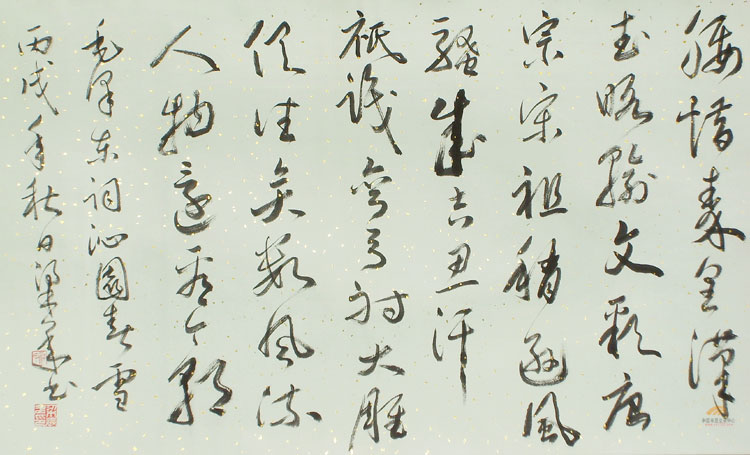 腰惜秦皇漢
武略輸文彩唐
宗宋祖稍遜風
騷成吉思汗
祇識彎弓射大雕
俱往矣數風流
人物還看今朝
毛澤東詞沁園春雪
丙戌年秋日梁書